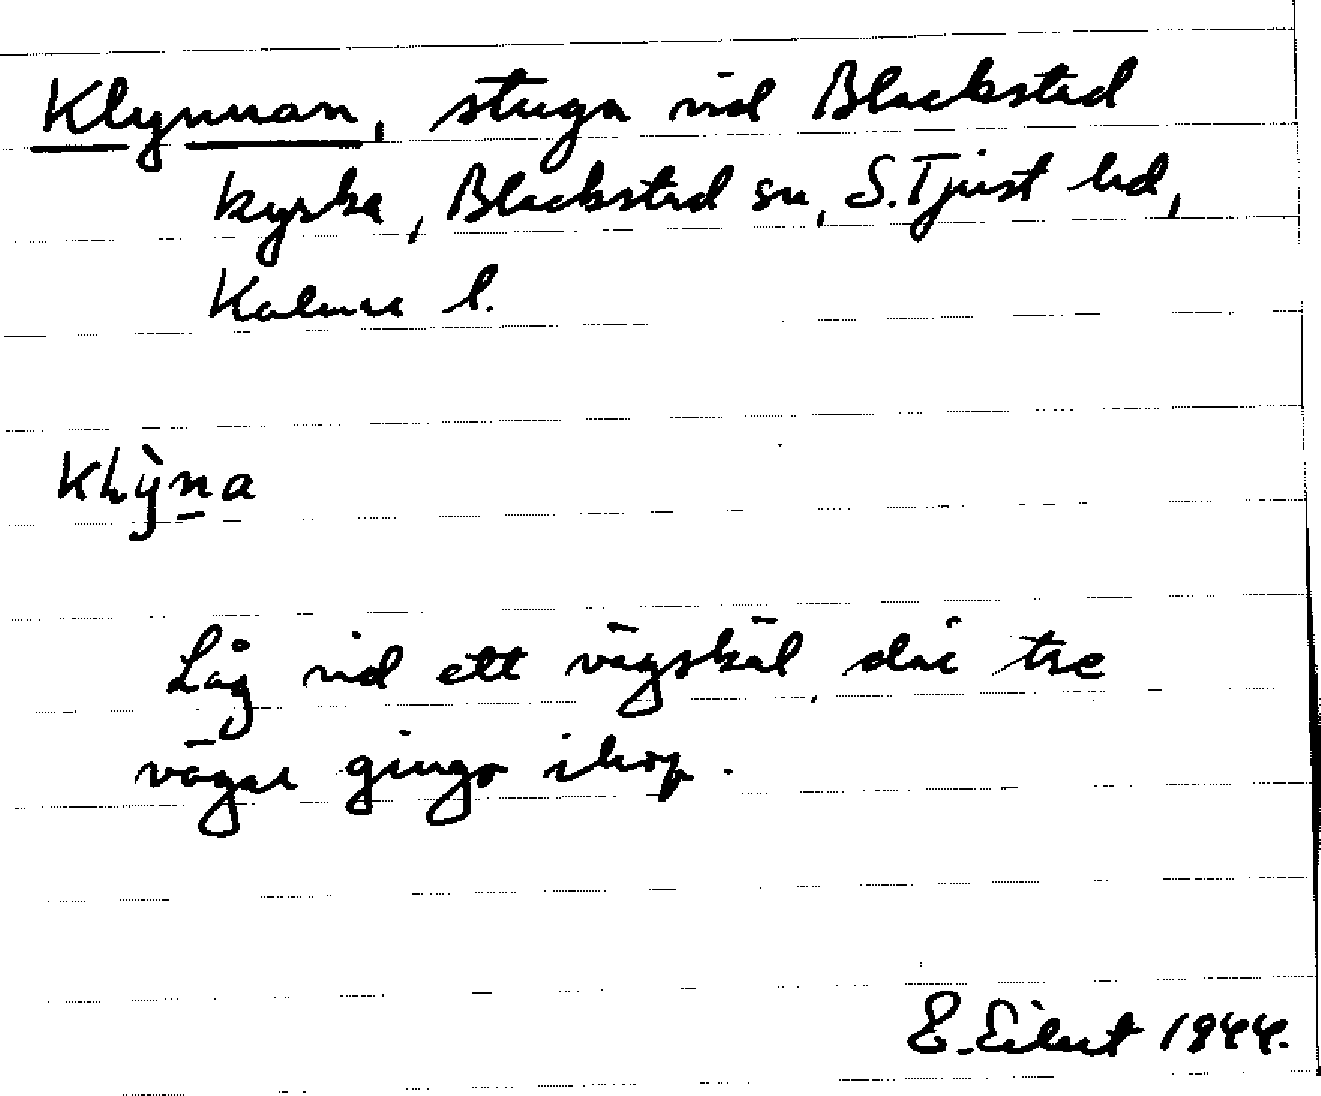 Klynnan, stuga vid Blackstad
kyrka, Blackstad sn, S. Tjust hd,
Kalmar l.
klỳna
Låg vid ett vägskäl, där tre
vägar gingo ihop.
E. Eilert 1944.